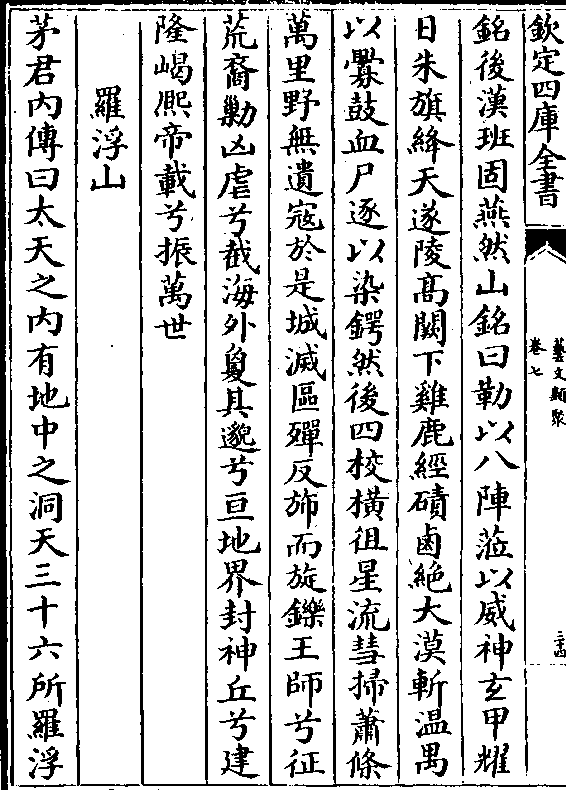 欽定四庫全書
藝文類聚
卷七
三十四
銘後漢班固燕然山銘曰勒以八陣蒞以威神玄甲耀
日朱旗絳天遂陵高闕下雞鹿經磧鹵絶大漠斬温禺
以釁鼓血尸逐以染鍔然後四校橫徂星流彗掃蕭條
萬里野無遺寇於是城滅區殫反斾而旋鑠王師兮征
荒裔勦凶虐兮截海外敻其邈兮亘地界封神丘兮建
隆嵑熙帝載兮振萬世
羅浮山
茅君内傳曰太天之内有地中之洞天三十六所羅浮